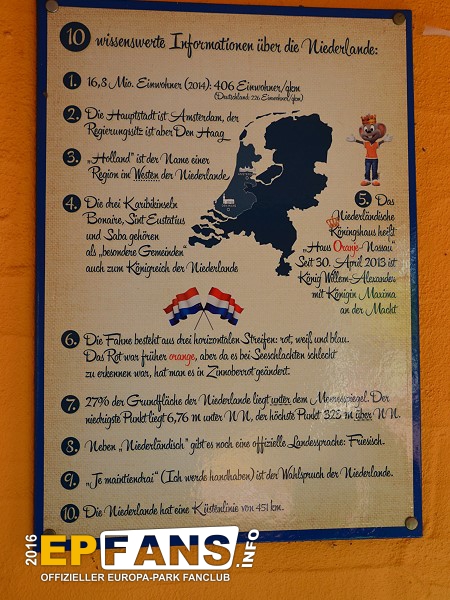 10 wissenswerte Informationen über die Niederlande:
1. 16,8 Mio. Einwohner (2014): 406 Einwohner/qkm
(Deutschland: 226 Einwohner/qkm)
2. Die Hauptstadt ist Amsterdam, der
Regierungssitz ist aber Den Haag
3. „Holland" ist der Name einer
Region im Westen der Niederlande
4. Die drei Karibikinseln
Bonaire, Sint Eustatius
und Saba gehören
als „besondere Gemeinden"
auch zum Königreich der Niederlande
5. Das
Niederländische
Königshaus heißt
„Haus Oranje-Nassau"
Seit 30. April 2013 ist
König Willem-Alexander
mit Königin Maxima
an der Macht
6. Die Fahne besteht aus drei horizontalen Streifen: rot, weiß und blau.
Das Rot war früher orange, aber da es bei Seeschlachten schlecht
zu erkennen war, hat man es in Zinnoberrot geändert.
7. 27% der Grundfläche der Niederlande liegt unter dem Meeresspiegel. Der
niedrigste Punkt liegt 6,76 m unter NN, der höchste Punkt 323 m über NN.
8. Neben „Niederländisch" gibt es noch eine offizielle Landesprache: Friesisch.
9. „Je maintiendrai" (Ich werde handhaben) ist der Wahlspruch der Niederlande.
10. Die Niederlande hat eine Küstenlinie von 451 km.
2016
EPFANS.INFO
OFFIZIELLER EUROPA-PARK FANCLUB